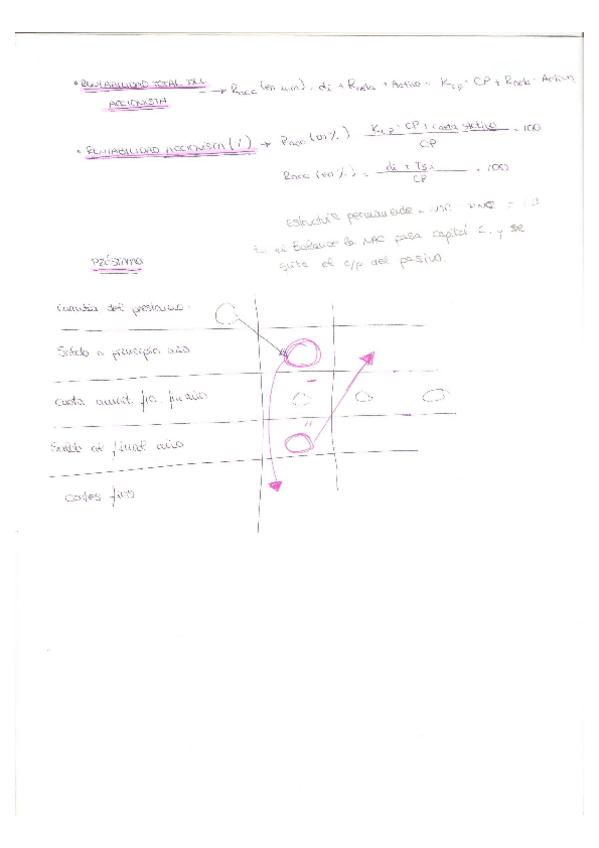 • RENTABILIDAD TOTAL DEL → Racc (en u.m.) = di + Rneta · Activo = Kcp · CP + Rneta · Activo
ACCIONISTA
• RENTABILIDAD ACCIONISTA (i) → Racc (en %) Kcp · CP + Rneta · Activo · 100
CP
Racc (en %) = di + · 100
CP
Estructura permanente =
el Balance la NAC pasa capital C. y se
quita el c/p del pasivo.
PRÉSTAMO
Cuantía del préstamo
Saldo a principio año
Cuota amort. fin. por año
Saldo al final año
Costes fin